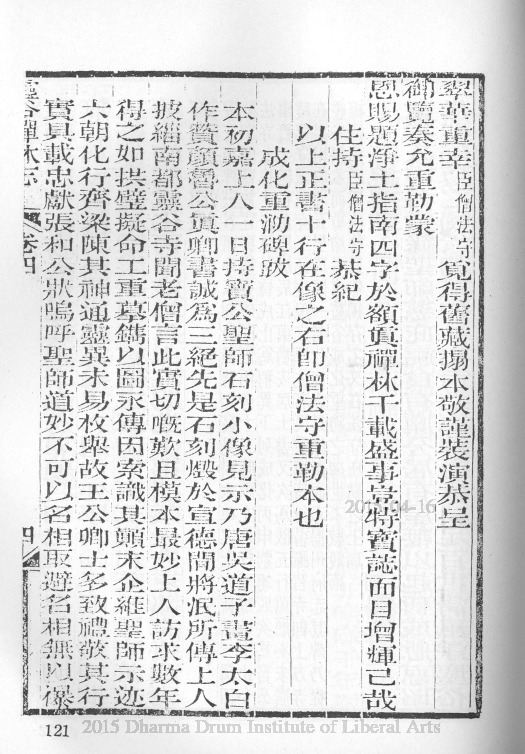 翠華重幸臣僧法守覓得舊藏搨本敬謹裝演恭呈
御覽奏允重勒蒙
恩賜題淨土指南四字於額眞禪林千載盛事豈特寶誌面目增輝已哉
住持臣僧法守恭紀
以上正書十行在像之石卽僧法守重勒本也
成化重泐碑跋
本初嘉上人一日持寶公聖師石刻小像見示乃唐吳道子畫李太白
作贊顏魯公眞卿書誠爲三絕先是石刻燬於宣德間將泯所傳上人
披緇南都靈谷寺聞老僧言此實切嘅歎且模本最妙上人訪求數年
得之如拱璧擬命工重摹鐫以圖永傳因索識其顛末企維聖師示迹
六朝化行齊梁陳其神通靈異未易枚舉故王公卿士多致禮敬其行
實具載忠獻張和公狀嗚呼聖師道妙不可以名相取避名相無以
靈谷禪林志 卷四 四
121
2015 Dharma Drum Institute of Liberal Arts